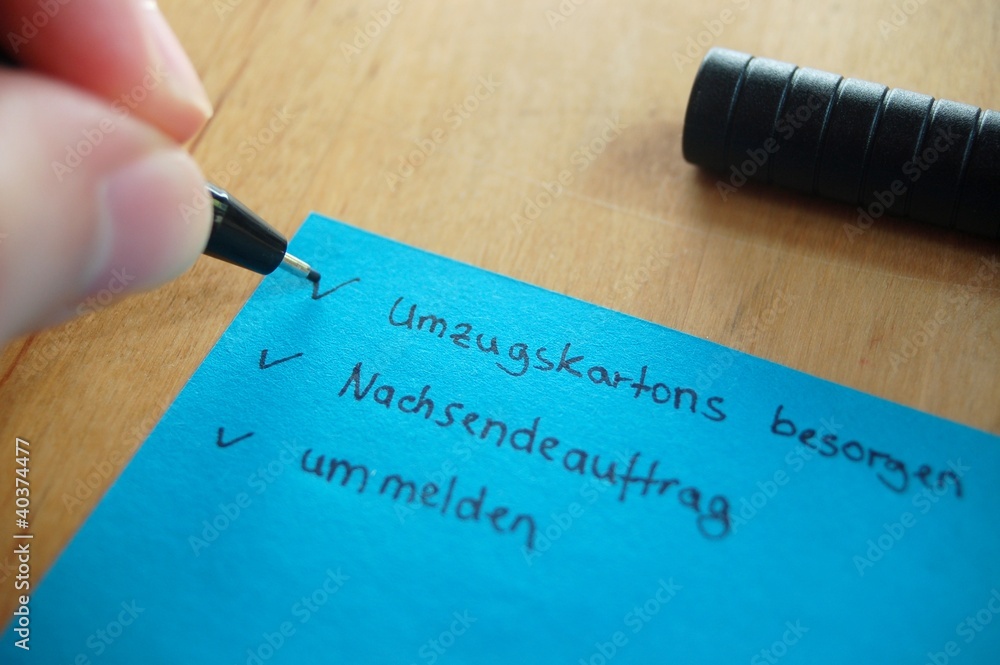 ✓ Umzugskartons besorgen
✓ Nachsendeauftrag
✓ ummelden
Adobe Stock | #40374477